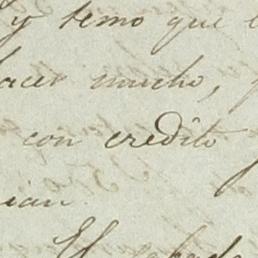 y temo que
hacer mucho,
con credito
ian.
El